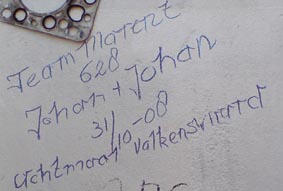 Team Marent
628
Johan + Johan
31/10-08
Achtmaal Valkenswaard